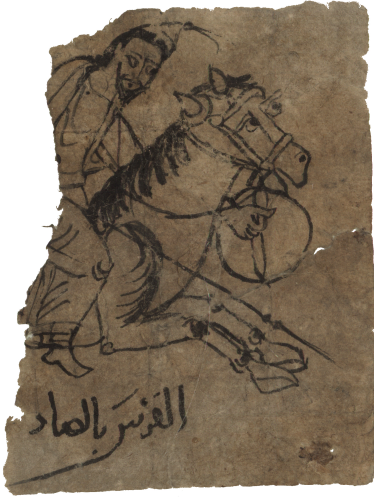 الفرَسَ بالهاد